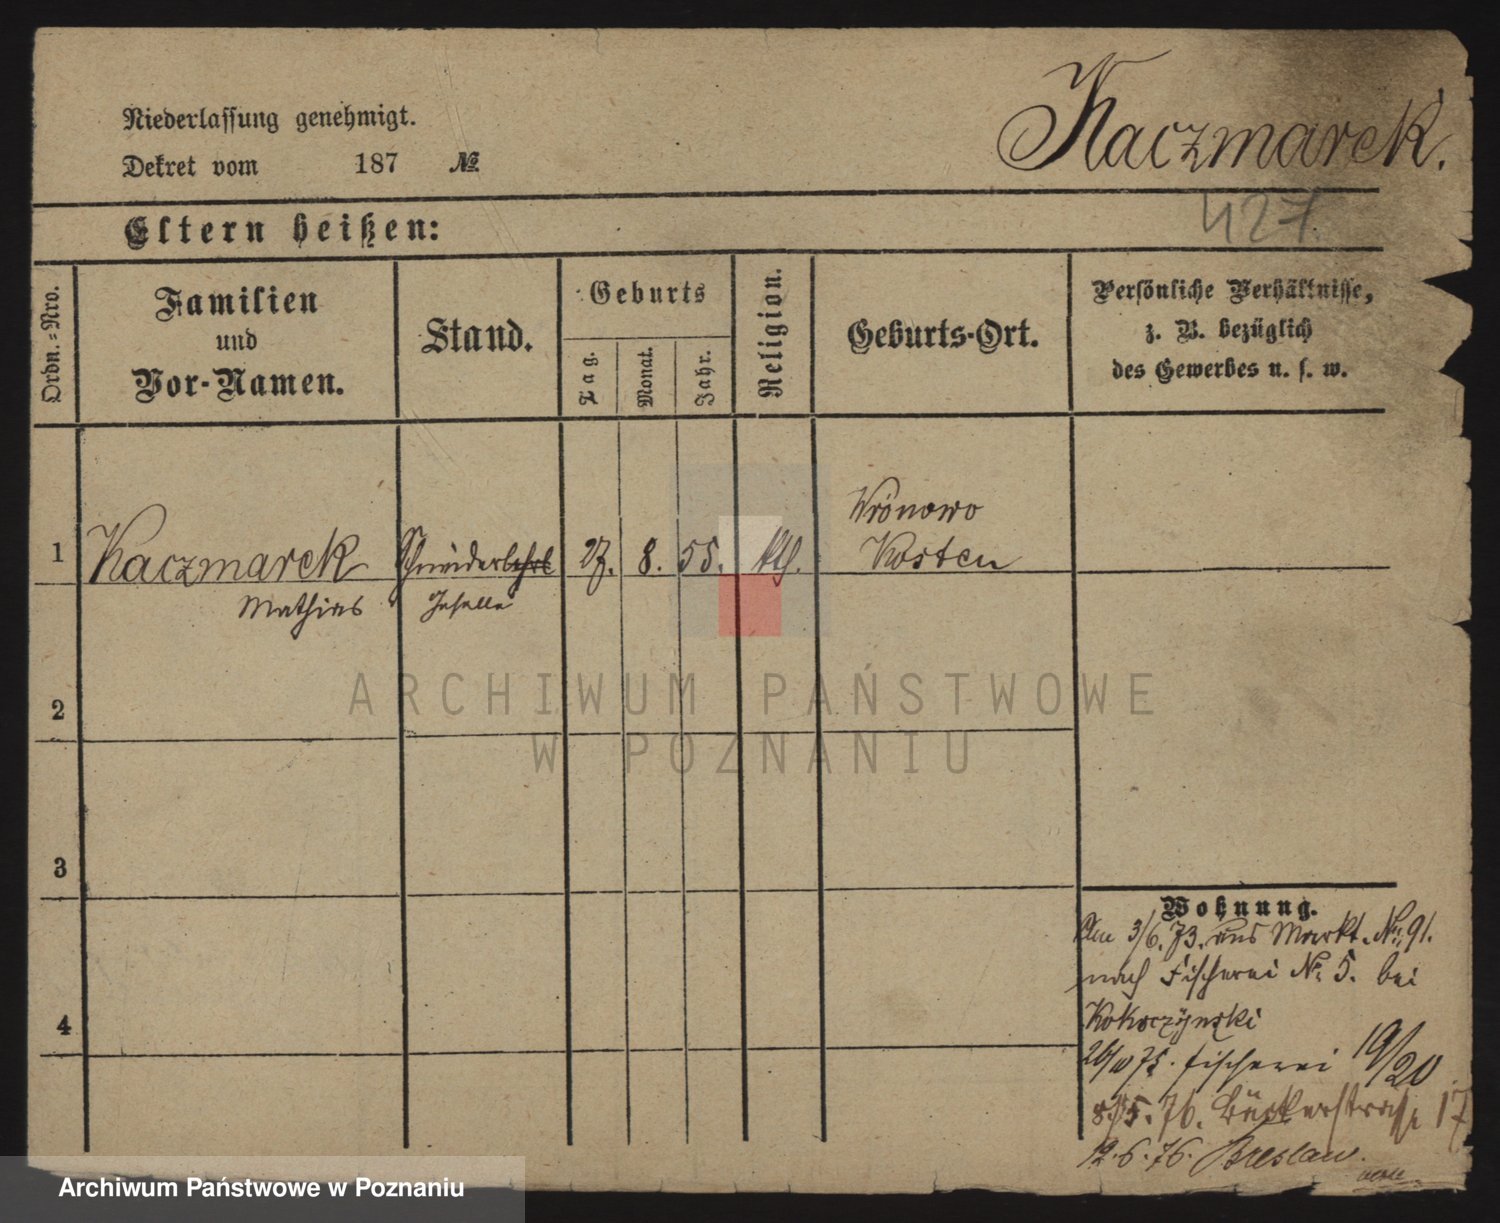 Niederlassung genehmigt.
Dekret vom 187 №
Kaczmarek.
427
Eltern heißen:
Ordn.-Nro.
Familien
und
Vor-Namen.
Stand.
Geburts
Tag.
Monat.
Jahr.
Religion.
Geburts-Ort.
Persönliche Verhältnisse,
z. B. bezüglich
des Gewerbes u. s. w.
1 Kaczmarek Schneiderlehrl 27. 8. 55. kth. Wronowo
Kosten
Mathias Geselle
2
3
4
Wohnung.
Am 3/6. 73. aus Markt. No. 91.
nach Fischerei No. 5. bei
75. Fischerei 19/20
8/5. 76. Bäckerstraße 17
12.6.76. Breslau.
ARCHIWUM PAŃSTWOWE
W POZNANIU
Archiwum Państwowe w Poznaniu